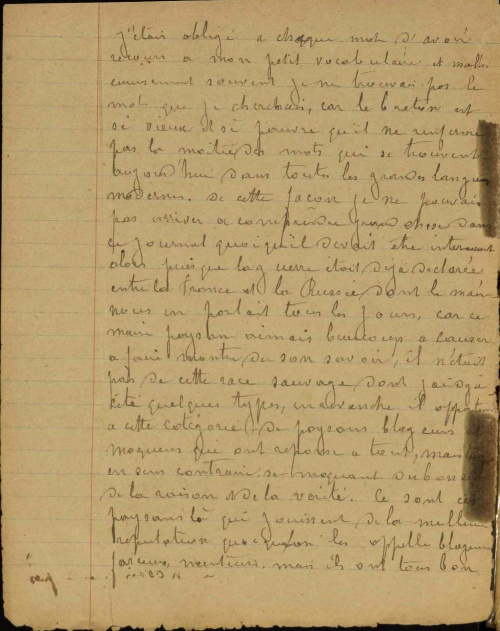 j'étais obligé a chaque mot d'avoir
recours a mon petit vocabulaire et malheu
reusement souvent je ne trouvais pas le
mot que je cherchais, car le breton est
si vieux et si pauvre qu'il ne renferme
pas la moitié des mots qui se trouvent
aujourd'hui dans toutes les grandes langues
modernes. de cette façon je ne pouvais
pas arriver a comprendre grand chose dans
ce journal quoiqu'il devait être interessant
alors puisque la guerre était déjà declarée
entre la France et la Russie, dont le maire
nous en parlait tous les jours, car ce
maire paysan aimait beaucoup a causer
a faire montre de son savoir, il n'était
pas de cette race sauvage dont j'ai déjà
cité quelques types, en revanche il appartenait
a cette categorie de paysans blagueurs et
moqueurs que ont reponse a tout, mais
en sens contraire se moquant du bon sens
de la raison et de la verité. Ce sont ces
paysans là qui jouissent de la meilleure
reputation quoiqu'on les appelle blagueurs
farceurs, menteurs, mais ils ont tous bon